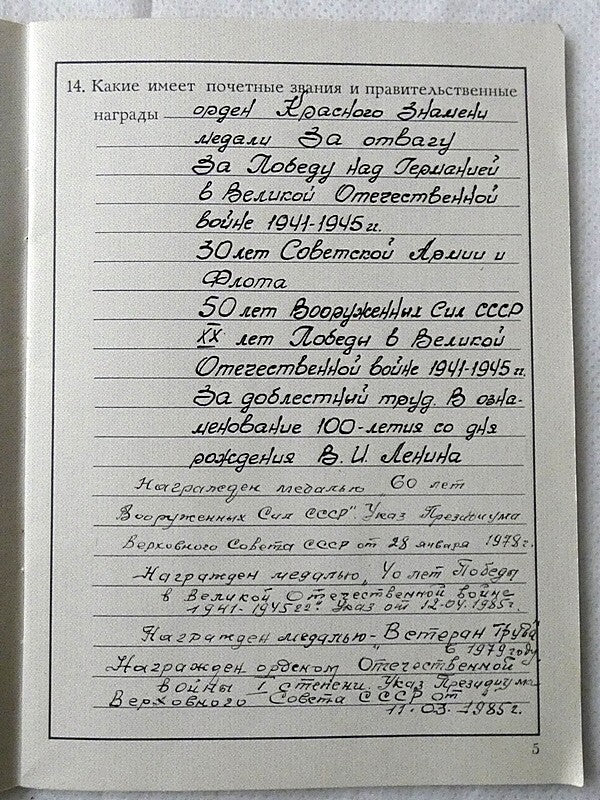 14. Какие имеет почетные звания и правительственные
награды орден Красного Знамени
медали За отвагу
За Победу над Германией
в Великой Отечественной
войне 1941-1945 гг.
30 лет Советской Армии и
Флота
50 лет Вооруженных Сил СССР
XX лет Победы в Великой
Отечественной войне 1941-1945 гг.
За доблестный труд. В озна-
менование 100-летия со дня
рождения В. И. Ленина
Награжден медалью 60 лет
Вооруженных Сил СССР". Указ Президиума
Верховного Совета СССР от 28 января 1978 г.
Награжден медалью „40 лет Победы
в Великой Отечественной войне
1941-1945 гг". Указ от 12.04.1985 г.
Награжден медалью "Ветеран Труда
в 1979 году
Награжден орденом Отечественной
войны I степени. Указ Президиума
Верховного Совета СССР от
11.03.1985 г.
5